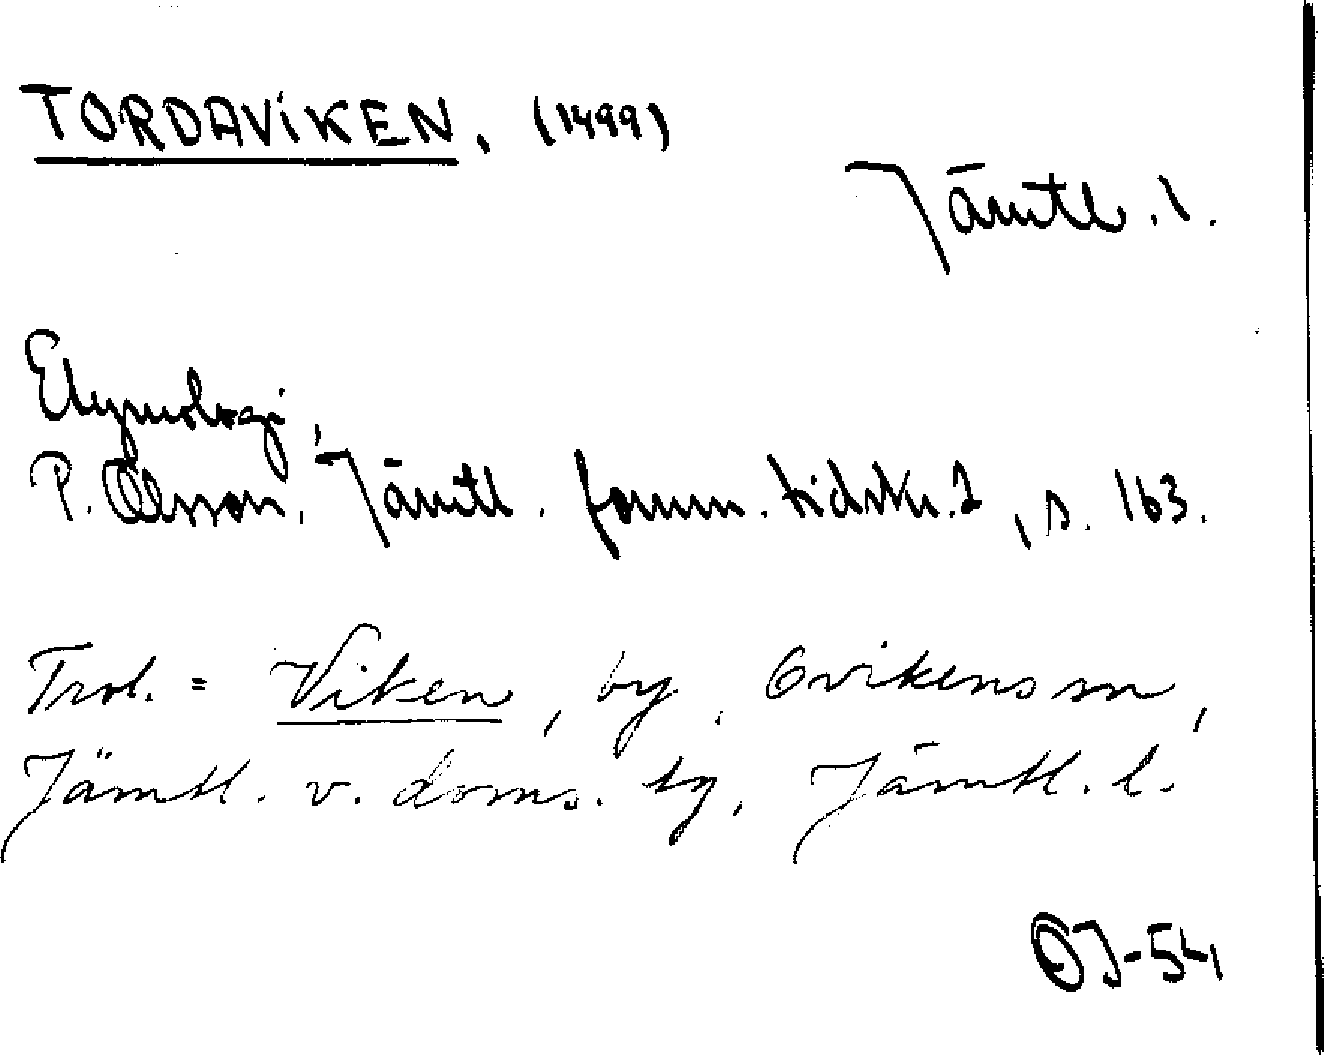 TORDAVIKEN. (1499)
Jämtl. l.
Etymologi,
P. Olsson, Jämtl. fornm. tidskr. 2, s. 163.
Trol. = Viken, by, Ovikens sn,
Jämtl. v. doms. tg, Jämtl. l.
OJ-54